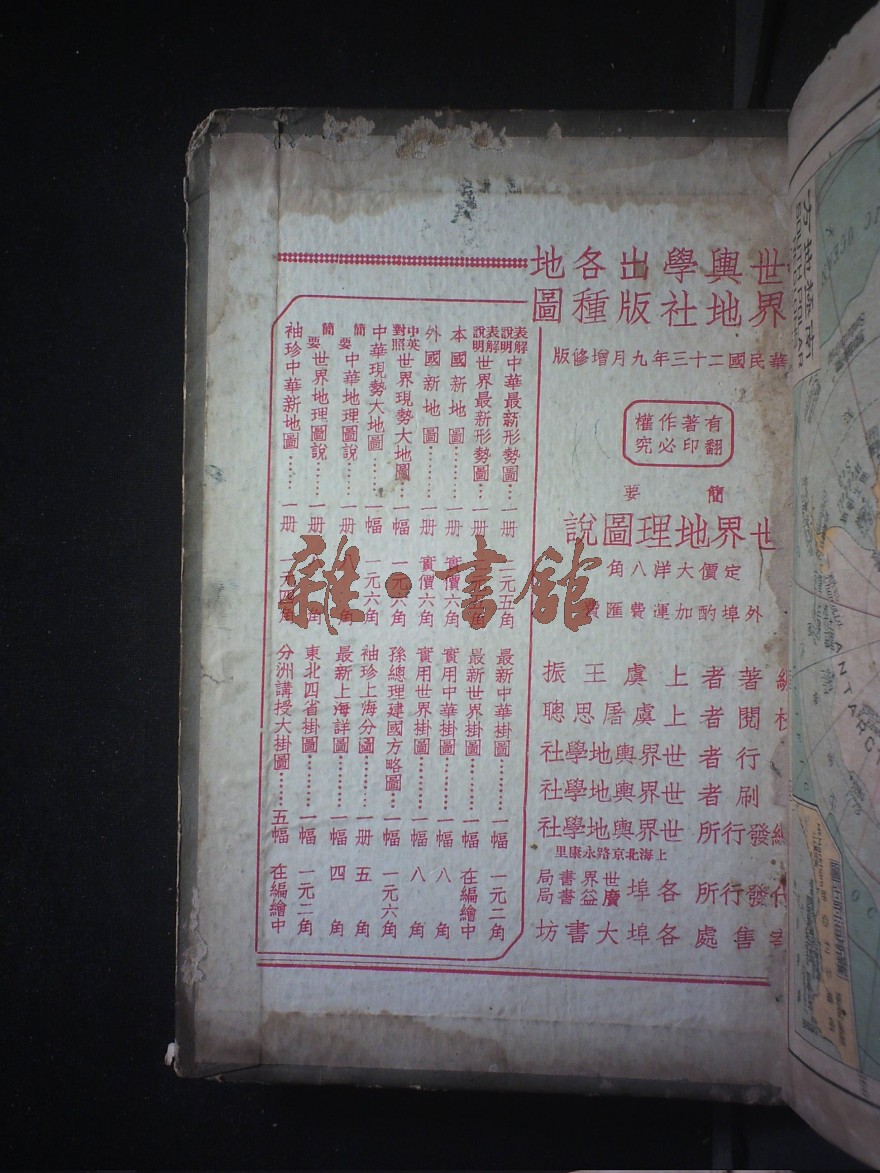 世界輿地學社出版各種地圖
華民國二十三年九月增修版
有著作權
翻印必究
簡要
世界地理圖說
定價大洋八角
外埠酌加運費匯費
著者上虞王振
閱者上虞屠思聰
行者世界輿地學社
刷者世界輿地學社
總發行所世界輿地學社
上海北京路永康里
代發行所各埠世界書局廣益書局
寄售處各埠大書坊
表解說明中華最新形勢圖……一册二元五角
表解說明世界最新形勢圖……一册元角
本國新地圖……一册實價六角
外國新地圖……一册實價六角
中英對照世界現勢大地圖……一幅一元六角
中華現勢大地圖……一幅一元六角
簡要中華地理圖說……一册角
簡要世界地理圖說……一册角
袖珍中華新地圖……一册一元四角
最新中華掛圖……一幅一元二角
最新世界掛圖……一幅在編繪中
實用中華掛圖……一幅八角
實用世界掛圖……一幅八角
孫總理建國方略圖……一幅一元六角
袖珍上海分圖……一册五角
最新上海詳圖……一幅四角
東北四省掛圖……一幅一元二角
分洲講授大掛圖……五幅在編繪中
雜·書館